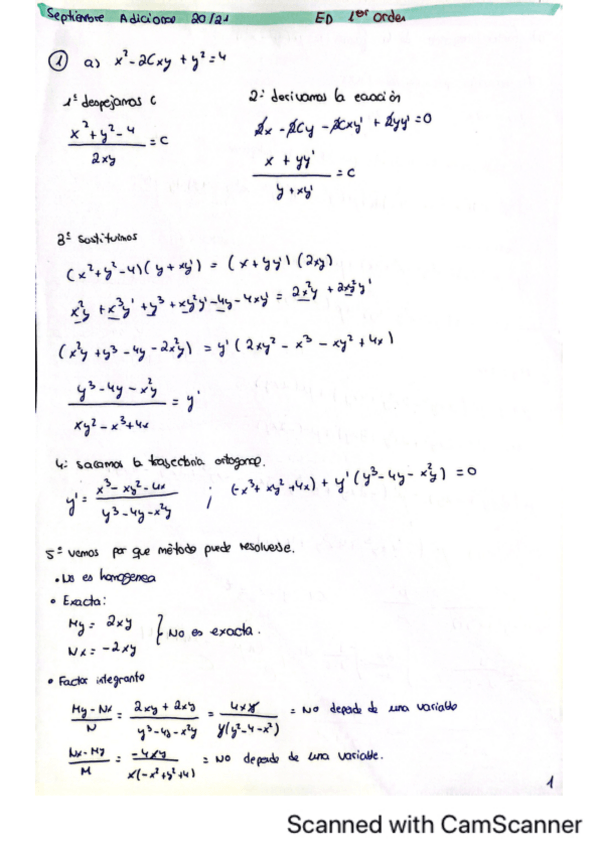 Septiembre Adicional 20/21 ED 1er Orden
① a) x² - 2Cxy + y² = 4
1º despejamos C
(x² + y² - 4)/(2xy) = C
2º derivamos la ecuación
2x - 2Cy - 2Cxy' + 2yy' = 0
(x + yy')/(y + xy') = C
3º sustituimos
(x² + y² - 4)(y + xy') = (x + yy')(2xy)
x²y + x³y' + y³ + xy²y' - 4y - 4xy' = 2x²y + 2xy²y'
(x²y + y³ - 4y - 2x²y) = y'(2xy² - x³ - xy² + 4x)
(y³ - 4y - x²y)/(xy² - x³ + 4x) = y'
4º sacamos la trayectoria ortogonal.
y' = (x³ - xy² - 4x)/(y³ - 4y - x²y) ; (-x³ + xy² + 4x) + y'(y³ - 4y - x²y) = 0
5º vemos por que método puede resolverse.
• No es homogenea
• Exacta:
My = 2xy
Nx = -2xy } No es exacta.
• Factor integrante
(My - Nx)/N = (2xy + 2xy)/(y³ - 4y - x²y) = 4xy/(y(y² - 4 - x²)) = No depende de una variable
(Nx - My)/M = -4xy/(x(-x² + y² + 4)) = No depende de una variable.
1
Scanned with CamScanner